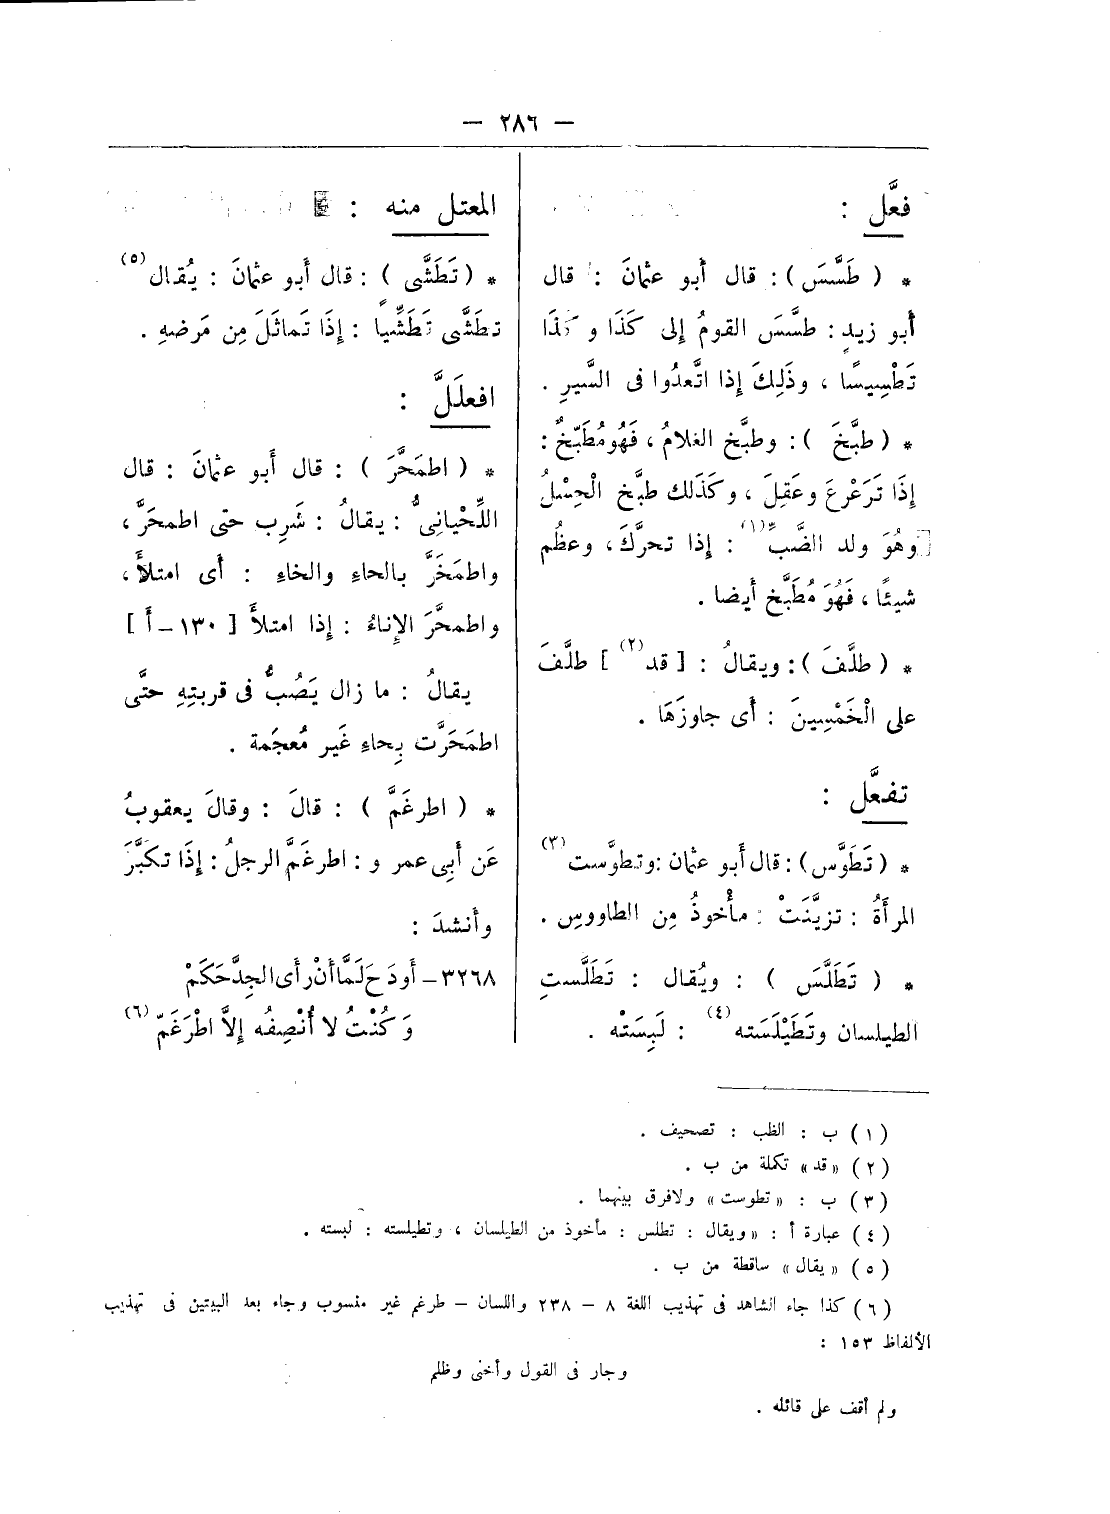 — ٢٨٦ —
فعَّل :
* ( طَسَّسَ ) : قال أبو عثمانَ : قال
أبو زيدٍ : طسَّسَ القومُ إلى كَذَا وكَذَا
تَطْسِيسًا ، وذَلِكَ إذا اتَّعدُوا فى السَّيرِ .
* ( طبَّخَ ) : وطبَّخ الغلامُ ، فَهُو مُطَبِّخٌ :
إذَا تَرَعْرعَ وعَقِلَ ، وكَذَلك طبَّخ الْحِسْلُ
وهُوَ ولد الضَّبِّ(١) : إذا تحرَّكَ ، وعظُم
شيئًا ، فَهُوَ مُطَبِّخ أيضا .
* ( طلَّفَ ) : ويقالُ : [ قد(٢) ] طلَّفَ
على الْخَمْسِينَ : أى جاوزَهَا .
تفعَّل :
* ( تَطَوَّس ) : قال أَبو عثمان : وتطوَّست(٣)
المرأَةُ : تزيَّنَتْ : مأْخوذُ مِن الطاووسِ .
* ( تَطَلَّسَ ) : ويُقال : تَطَلَّستِ
الطيلسان وتَطَيْلَسَته(٤) : لَبِسَتْه .
المعتل منه :
* ( تَطَشَّى ) : قال أَبو عثمانَ : يُقال(٥)
تطَشَّى تَطَشِّياً : إذَا تَماثَلَ مِن مَرضهِ .
افعلَلَّ :
* ( اطمَحَّرَ ) : قال أَبو عثمانَ : قال
اللِّحْيانِىُّ : يقالُ : شَرِب حتى اطمحَرَّ ،
واطمَخَرَّ بالحاءِ والخاءِ : أى امتلأَ ،
واطمحَّرَ الإناءُ : إذا امتلأَ [ ١٣٠ – أ ]
يقالُ : ما زال يَصُبُّ فى قربتِهِ حتَّى
اطمَحَرَّت بِحاءِ غَير مُعجَمة .
* ( اطرغَمَّ ) : قالَ : وقالَ يعقوبُ
عَن أَبِى عمرو : اطرغَمَّ الرجلُ : إذَا تكبَّرَ
وأَنشدَ :
٣٢٦٨ – أَودَحَ لَمَّا أَنْ رأَى الجِدَّ حَكَمْ
وَكُنْتُ لا أُنْصِفُه إلاَّ اطْرَغَمّ(٦)
(١) ب : الظب : تصحيف .
(٢) « قد » تكملة من ب .
(٣) ب : « تطوست » ولافرق بينهما .
(٤) عبارة أ : « ويقال : تطلس : مأخوذ من الطيلسان ، وتطيلسته : لبسته .
(٥) « يقال » ساقطة من ب .
(٦) كذا جاء الشاهد فى تهذيب اللغة ٨ – ٢٣٨ واللسان – طرغم غير منسوب وجاء بعد البيتين فى تهذيب
الألفاظ ١٥٣ :
وجار فى القول وأخنى وظلم
ولم أقف على قائله .